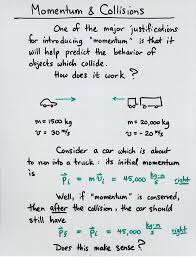 Momentum & Collisions
One of the major justifications
for introducing "momentum" is that it
will help predict the behavior of
objects which collide.
How does it work?
m = 1500 kg m = 20,000 kg
v = 30 m/s v = -20 m/s
Consider a car which is about
to run into a truck: its initial momentum
is p⃗ᵢ = mv⃗ᵢ = 45,000 kg·m/s right
Well, if "momentum" is conserved,
then after the collision, the car should
still have
p⃗f = mv⃗f = 45,000 kg·m/s right
Does this make sense?